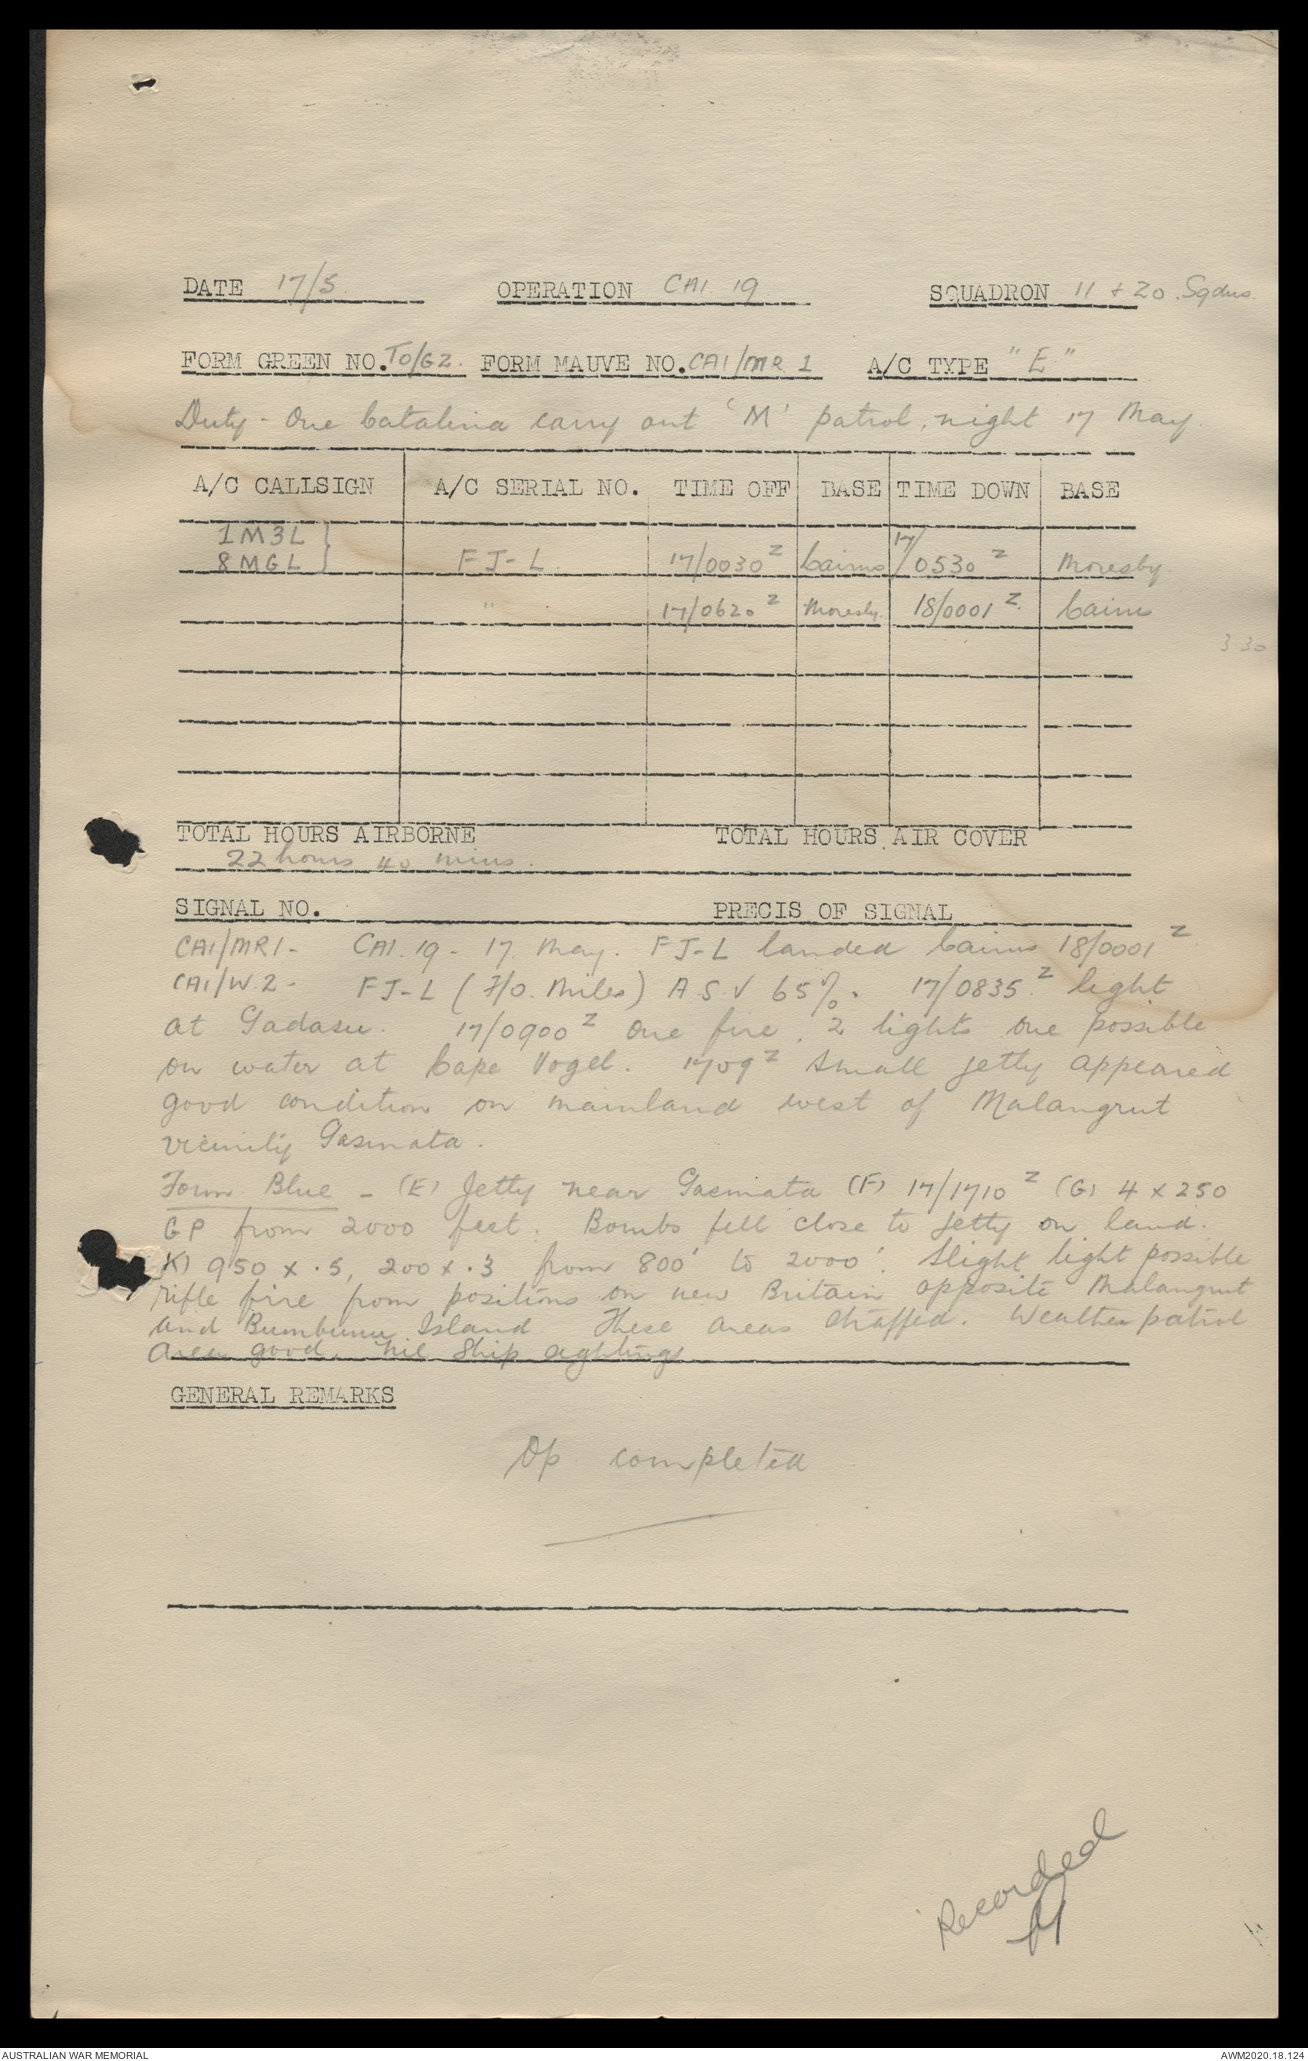 DATE 17/5. OPERATION CAI. 19 SQUADRON 11 + 20. Sqdns.
FORM GREEN NO. TO/G2. FORM MAUVE NO. CAI/MR 1 A/C TYPE "E"
Duty - One Catalina carry out 'M' patrol, night 17 May.
A/C CALLSIGN A/C SERIAL NO. TIME OFF BASE TIME DOWN BASE
1M3L }
8MGL } FJ-L 17/0030 Z Cairns 17/0530 Z Moresby.
" 17/0620 Z Moresby 18/0001 Z. Cairns
3 30
TOTAL HOURS AIRBORNE TOTAL HOURS AIR COVER
22 hours 40 mins.
SIGNAL NO. PRECIS OF SIGNAL
CAI/MR1 - CAI. 19 - 17. May. FJ-L landed Cairns 18/0001 Z
CAI/W.2 - FJ-L (F/O. Miles) A.S.V 65%. 17/0835 Z light
at Gadasu. 17/0900 Z one fire. 2 lights one possible
on water at Cape Vogel. 1709 Z small jetty appeared
good condition on mainland west of Malangrut
vicinity Gasmata.
Form Blue - (E) Jetty near Gasmata (F) 17/1710 Z (G) 4 x 250
GP from 2000 feet. Bombs fell close to jetty on land.
K) 950 x .5, 200 x .3 from 800' to 2000'. Slight light possible
rifle fire from positions on new Britain opposite Malangrut
and Bumbunu Island These areas straffed. Weather patrol
area good. Nil Ship sightings
GENERAL REMARKS
Op. completed
Recorded
AUSTRALIAN WAR MEMORIAL AWM2020.18.124